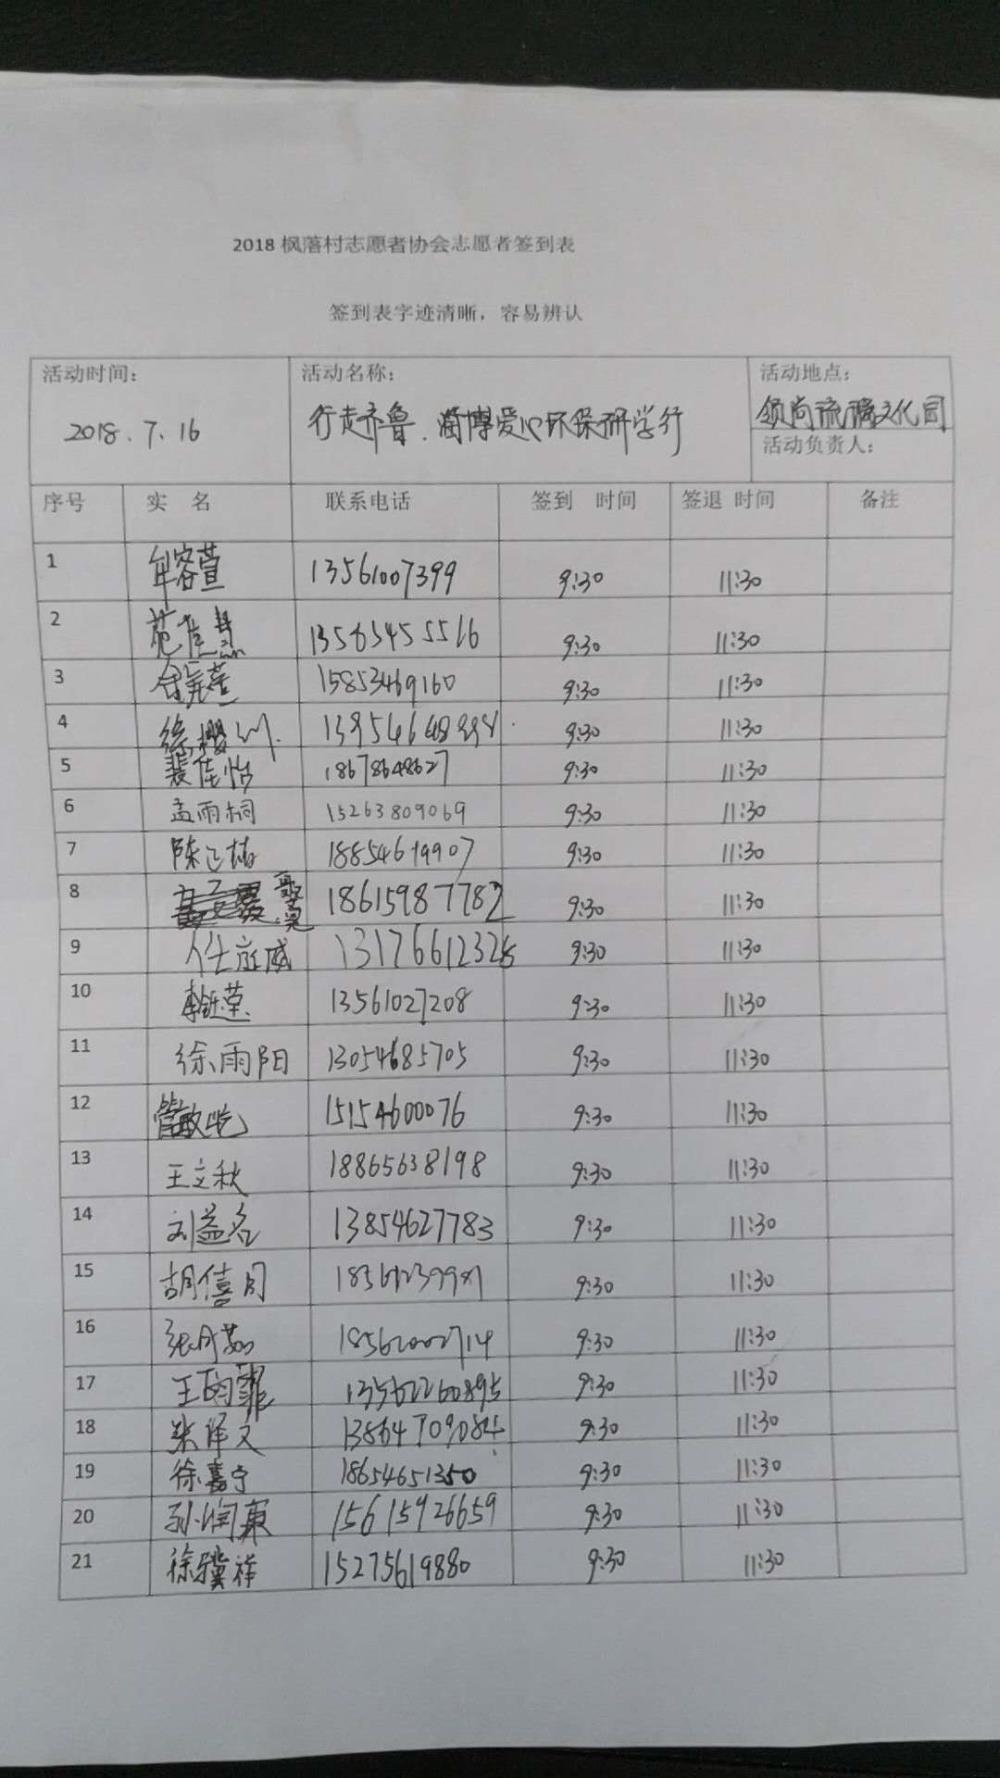 2018 枫落村志愿者协会志愿者签到表
签到表字迹清晰，容易辨认
活动时间： 活动名称： 活动地点：
2018.7.16 行走齐鲁.淄博爱心环保研学行 领尚琉璃文化园
活动负责人：
序号 实 名 联系电话 签到 时间 签退 时间 备注
1 牟容萱 13561007399 9:30 11:30
2 9:30 11:30
3 15853469160 9:30 11:30
4 9:30 11:30
5 裴佳怡 18678648627 9:30 11:30
6 孟雨桐 15263809069 9:30 11:30
7 18854619907 9:30 11:30
8 18615987782 9:30 11:30
9 任庭威 9:30 11:30
10 13561027208 9:30 11:30
11 徐雨阳 13054685705 9:30 11:30
12 15154600076 9:30 11:30
13 王文秋 18865638198 9:30 11:30
14 刘益名 13854627783 9:30 11:30
15 胡僖月 9:30 11:30
16 9:30 11:30
17 9:30 11:30
18 13864709084 9:30 11:30
19 徐嘉宁 18654651350 9:30 11:30
20 孙润东 15615926659 9:30 11:30
21 徐骥祥 15275619880 9:30 11:30